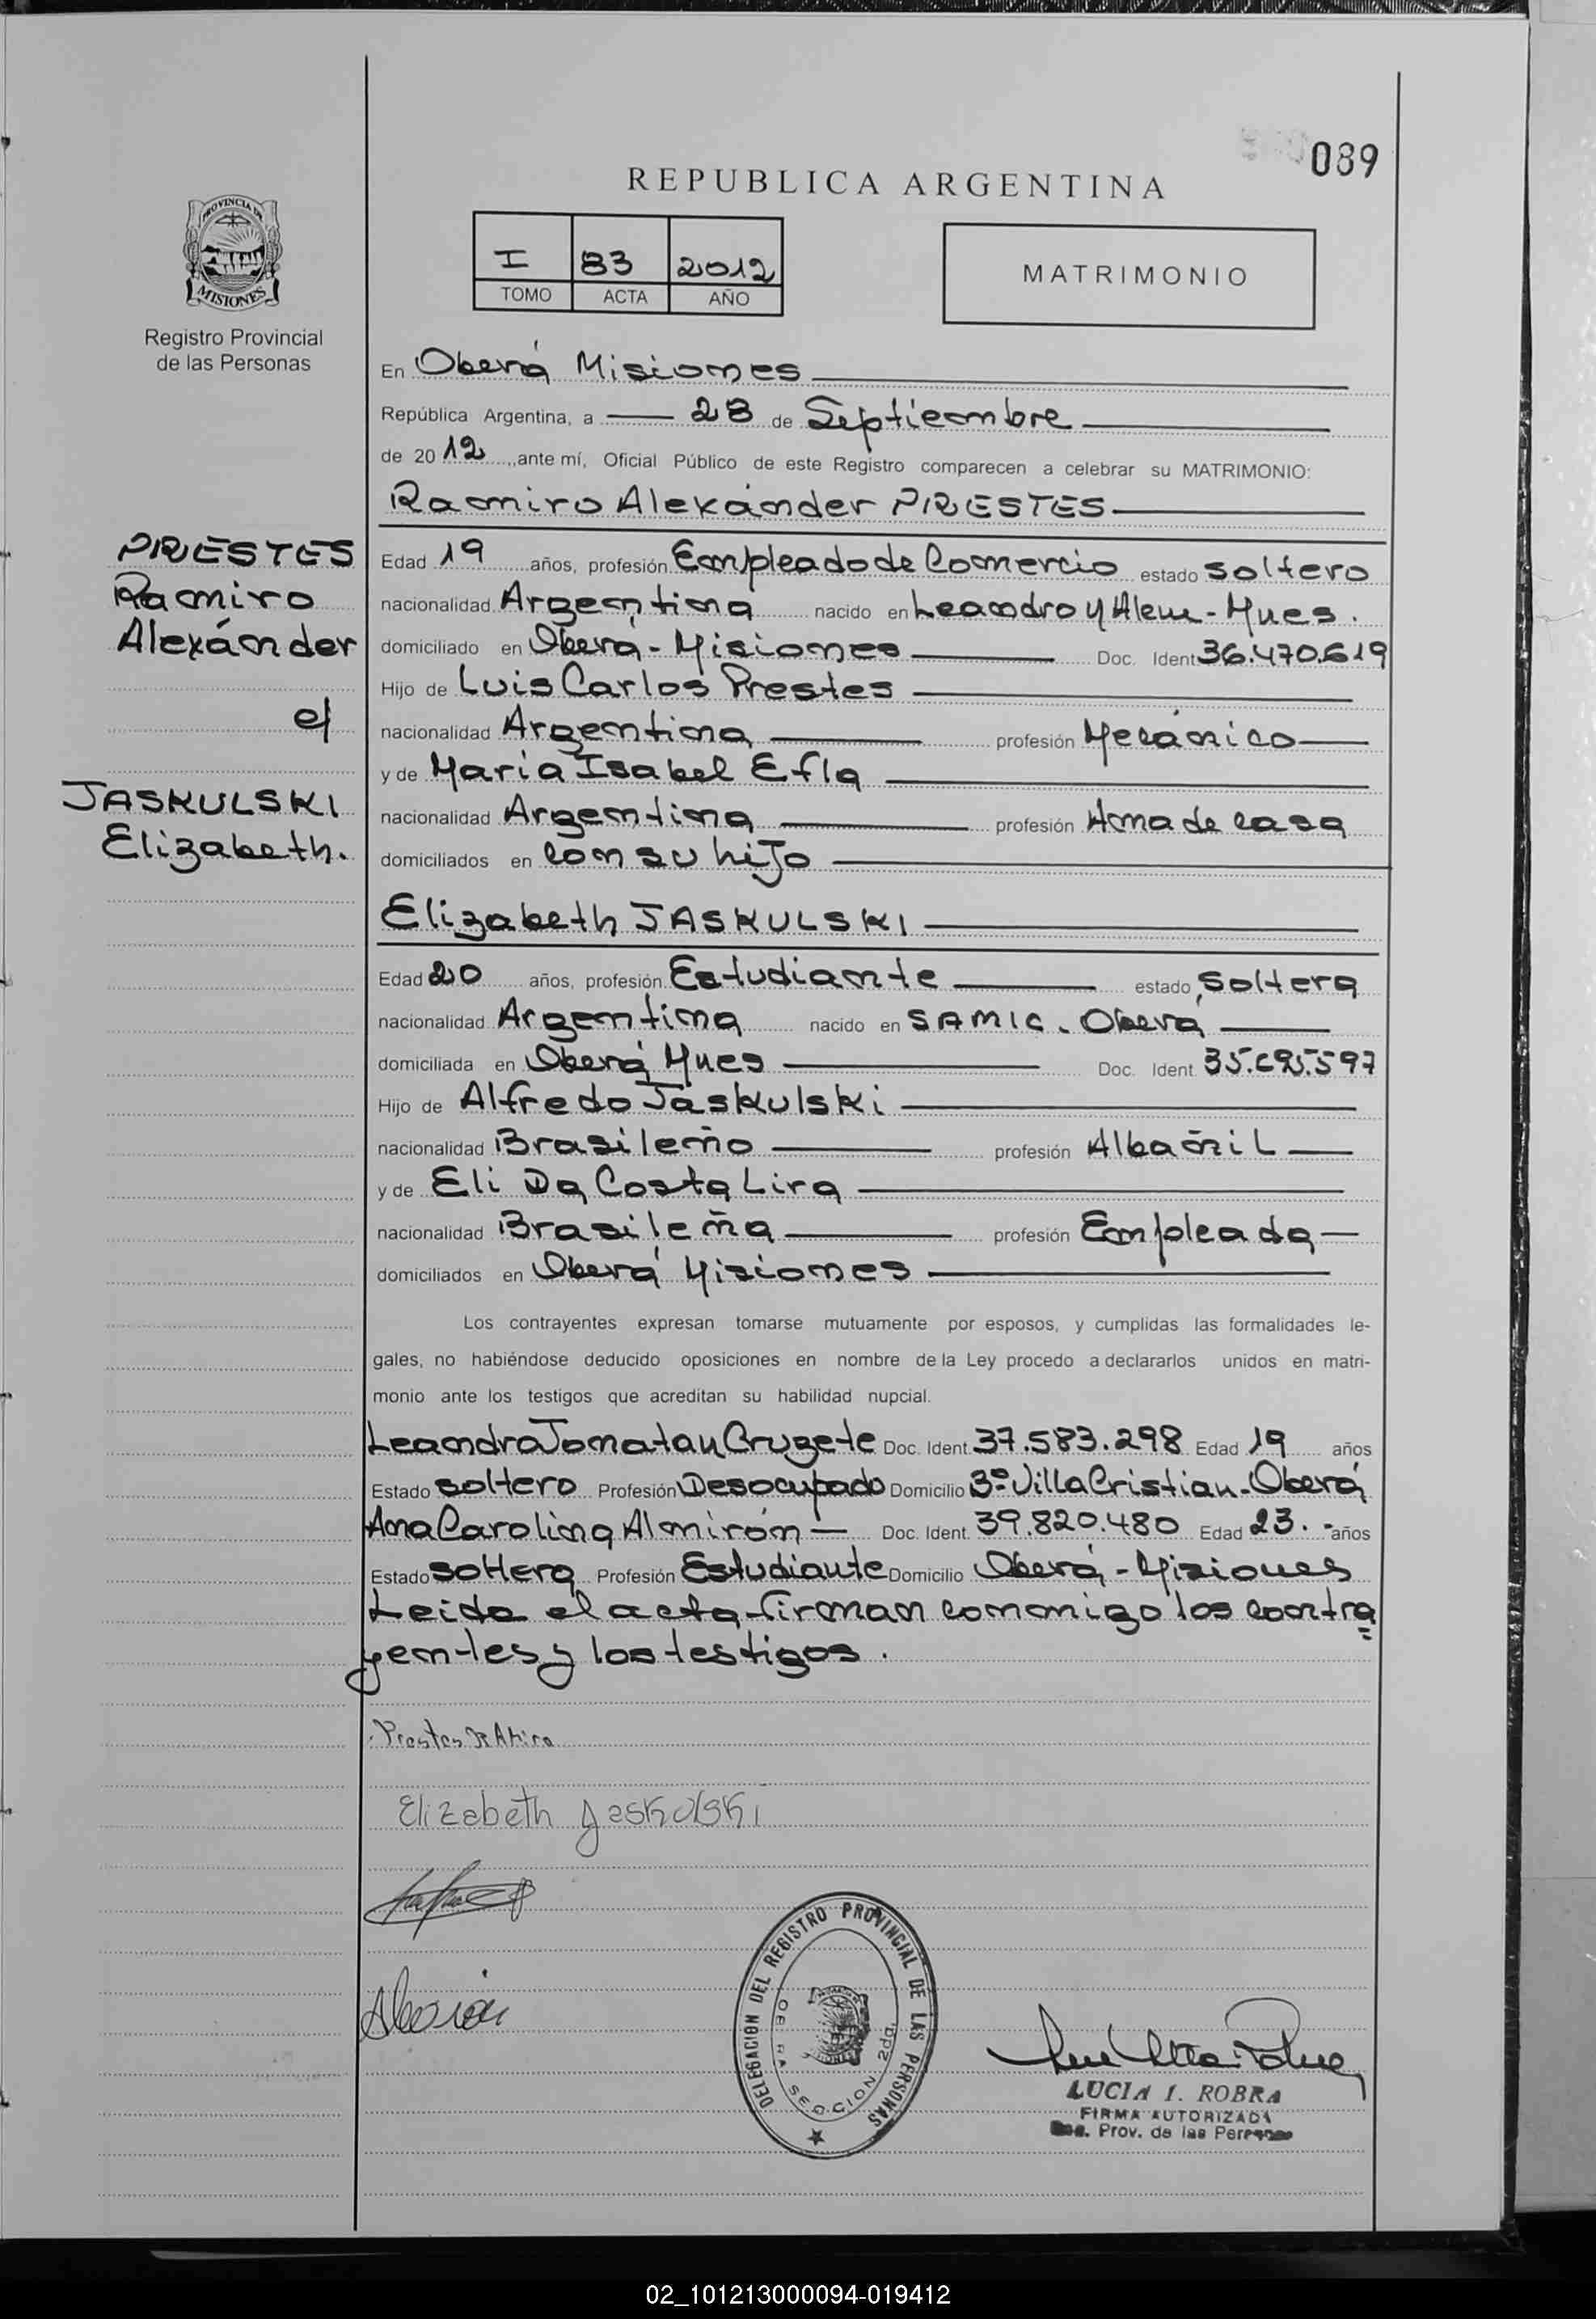 089
REPUBLICA ARGENTINA
PROVINCIA DE
MISIONES
Registro Provincial
de las Personas
I 83 2012
TOMO ACTA AÑO
MATRIMONIO
En Oberá Misiones
República Argentina, a 28 de Septiembre
de 2012, ante mí, Oficial Público de este Registro comparecen a celebrar su MATRIMONIO:
Ramiro Alexánder PRESTES
PRESTES
Ramiro
Alexánder
c/
JASKULSKI
Elizabeth.
Edad 19 años, profesión Empleado de Comercio estado soltero
nacionalidad Argentina nacido en Leandro N Alem - Mnes.
domiciliado en Oberá - Misiones Doc. Ident 36.470.619
Hijo de Luis Carlos Prestes
nacionalidad Argentina profesión Mecánico
y de María Isabel Efla
nacionalidad Argentina profesión Ama de casa
domiciliados en con su hijo
Elizabeth JASKULSKI
Edad 20 años, profesión Estudiante estado soltera
nacionalidad Argentina nacido en SAMIC. Oberá
domiciliada en Oberá Mnes Doc. Ident 35.695.597
Hijo de Alfredo Jaskulski
nacionalidad Brasileño profesión Albañil
y de Eli Da Costa Lira
nacionalidad Brasileña profesión Empleada
domiciliados en Oberá Misiones
Los contrayentes expresan tomarse mutuamente por esposos, y cumplidas las formalidades le-
gales, no habiéndose deducido oposiciones en nombre de la Ley procedo a declararlos unidos en matri-
monio ante los testigos que acreditan su habilidad nupcial.
Leandro Jonatan Cruzete Doc. Ident. 37.583.298 Edad 19 años
Estado soltero Profesión Desocupado Domicilio Bº Villa Cristian - Oberá
Ana Carolina Almirón Doc. Ident. 39.820.480 Edad 23. años
Estado soltera Profesión Estudiante Domicilio Oberá - Misiones
Leida el acta firman conmigo los contra
yentes y los testigos.
Prestes RAmiro
Elizabeth Jaskulski
DELEGACION DEL REGISTRO PROVINCIAL DE LAS PERSONAS
OBERA SECCION 2da.
LUCIA I. ROBRA
FIRMA AUTORIZADA
Prov. de las Personas
02_101213000094-019412